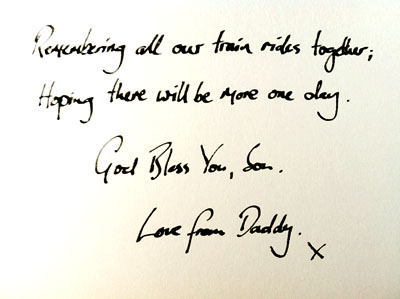 Remembering all our train rides together;
Hoping there will be more one day.
God Bless You, Son.
Love from Daddy.
X